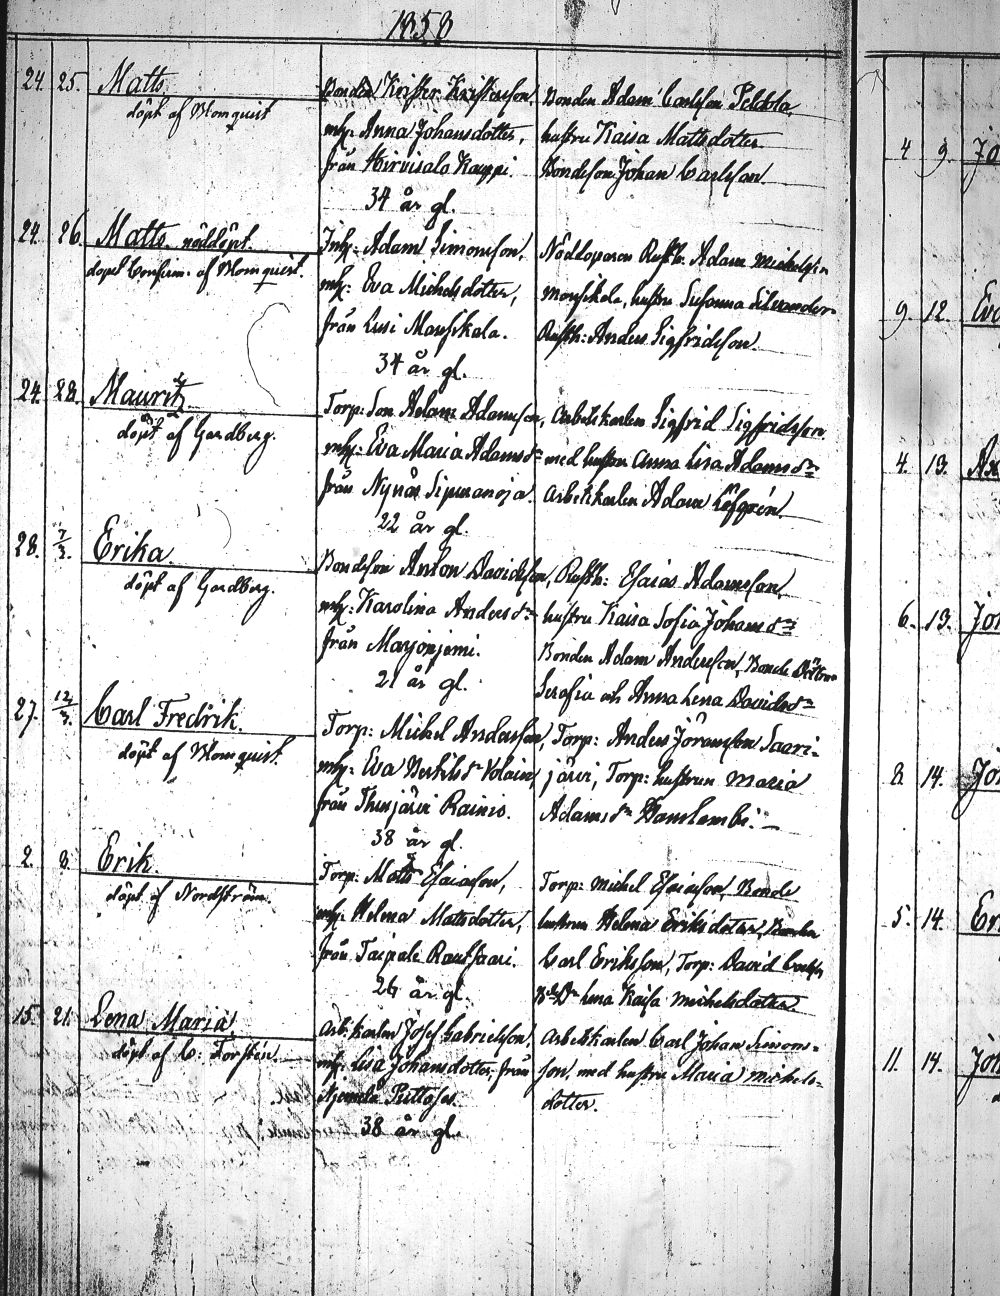 1858
24. 25. Matts
döpt af Blomquist
Bonden Krister Kristersson,
mh: Anna Johansdotter,
från Hirvisalo Kauppi.
34 år gl.
Bonden Adam Carlsson Peldola,
hustru Kaisa Mattsdotter
Bondeson Johan Carlsson.
24. 26. Matts nöddöpt.
döpt Confirm. af Blomquist.
Inh: Adam Simonsson,
mh: Eva Michelsdotter,
från Lusi Mansikala.
34 år gl.
Nöddoparen Rusth: Adam Michelss:n
Mansikala, hustru Susanna Silvander
Rusth: Anders Sigfridsson.
24. 28. Mauritz
döpt af Gardberg.
Torp: Son Adam Adamsson,
mh: Eva Maria Adamsdr
från Nynäs Sipuranoja.
22 år gl.
Arbetskarlen Sigfrid Sigfridsson
med hustru Anna Lisa Adamsdr
Arbetskarlen Adam Löfgrén.
28. 7/3. Erika
döpt af Gardberg.
Bondeson Anton Davidsson,
mh: Karolina Andersdr
från Marjoniemi.
21 år gl.
Rusth: Esaias Adamsson,
hustru Kaisa Sofia Johansdr
Bonden Adam Andersson, Bonde Döttrar
Serafia och Anna Lena Davidsdr
27. 12/3. Carl Fredrik.
döpt af Blomquist.
Torp: Michel Andersson,
mh: Eva Bertilsdr Volain,
från Thusjärvi Rainio.
38 år gl.
Torp: Anders Jöransson Saari-
järvi, Torp: hustrun Maria
Adamsdr
2. 8. Erik.
döpt af Nordström.
Torp: Matts Esaiasson,
mh: Helena Mattsdotter,
från Taipale Rautsaari.
26 år gl.
Torp: Michel Esaiasson, Bonde
hustrun Helena Eriksdotter,
Carl Eriksson, Torp: David
Lena Kaisa Michelsdotter.
15. 21. Lena Maria
döpt af C: Forstén.
Arb:karlen Josef Gabrielsson,
mh: Lisa Johansdotter, från
38 år gl.
Arbetskarlen Carl Johan Simons-
son, med hustru Maria Michels-
dotter.
4 9.
9. 12.
4. 13.
6. 13.
8. 14.
5. 14.
11. 14.